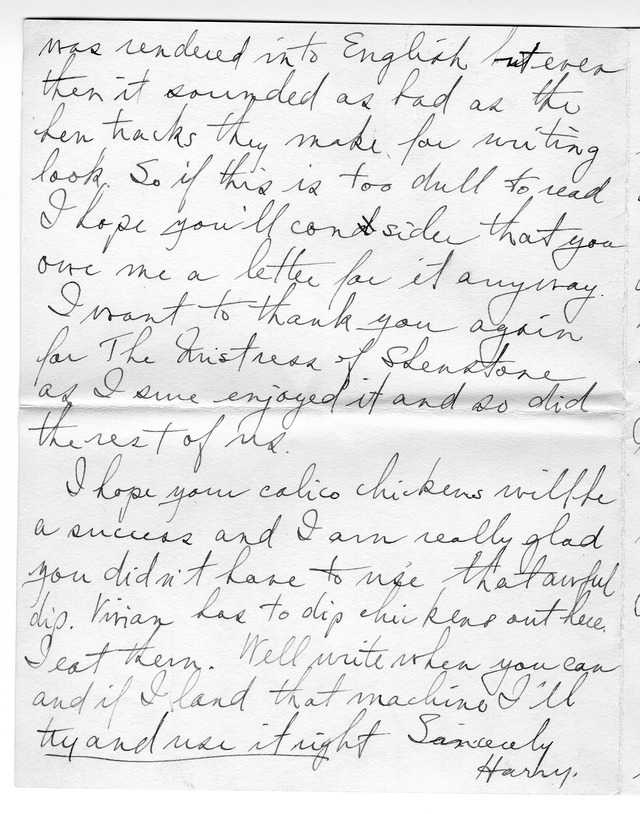 was rendered into English but even
then it sounded as bad as the
hen tracks they make for writing
look. So if this is too dull to read
I hope you'll condsider that you
owe me a letter for it anyway.
I want to thank you again
for The Mistress of Shenstone
as I sure enjoyed it and so did
the rest of us.
I hope your calico chickens will be
a success and I am really glad
you didn't have to use that awful
dip. Vivian has to dip chickens out here.
I eat them. Well write when you can
and if I land that machine I'll
try and use it right Sincerely
Harry.